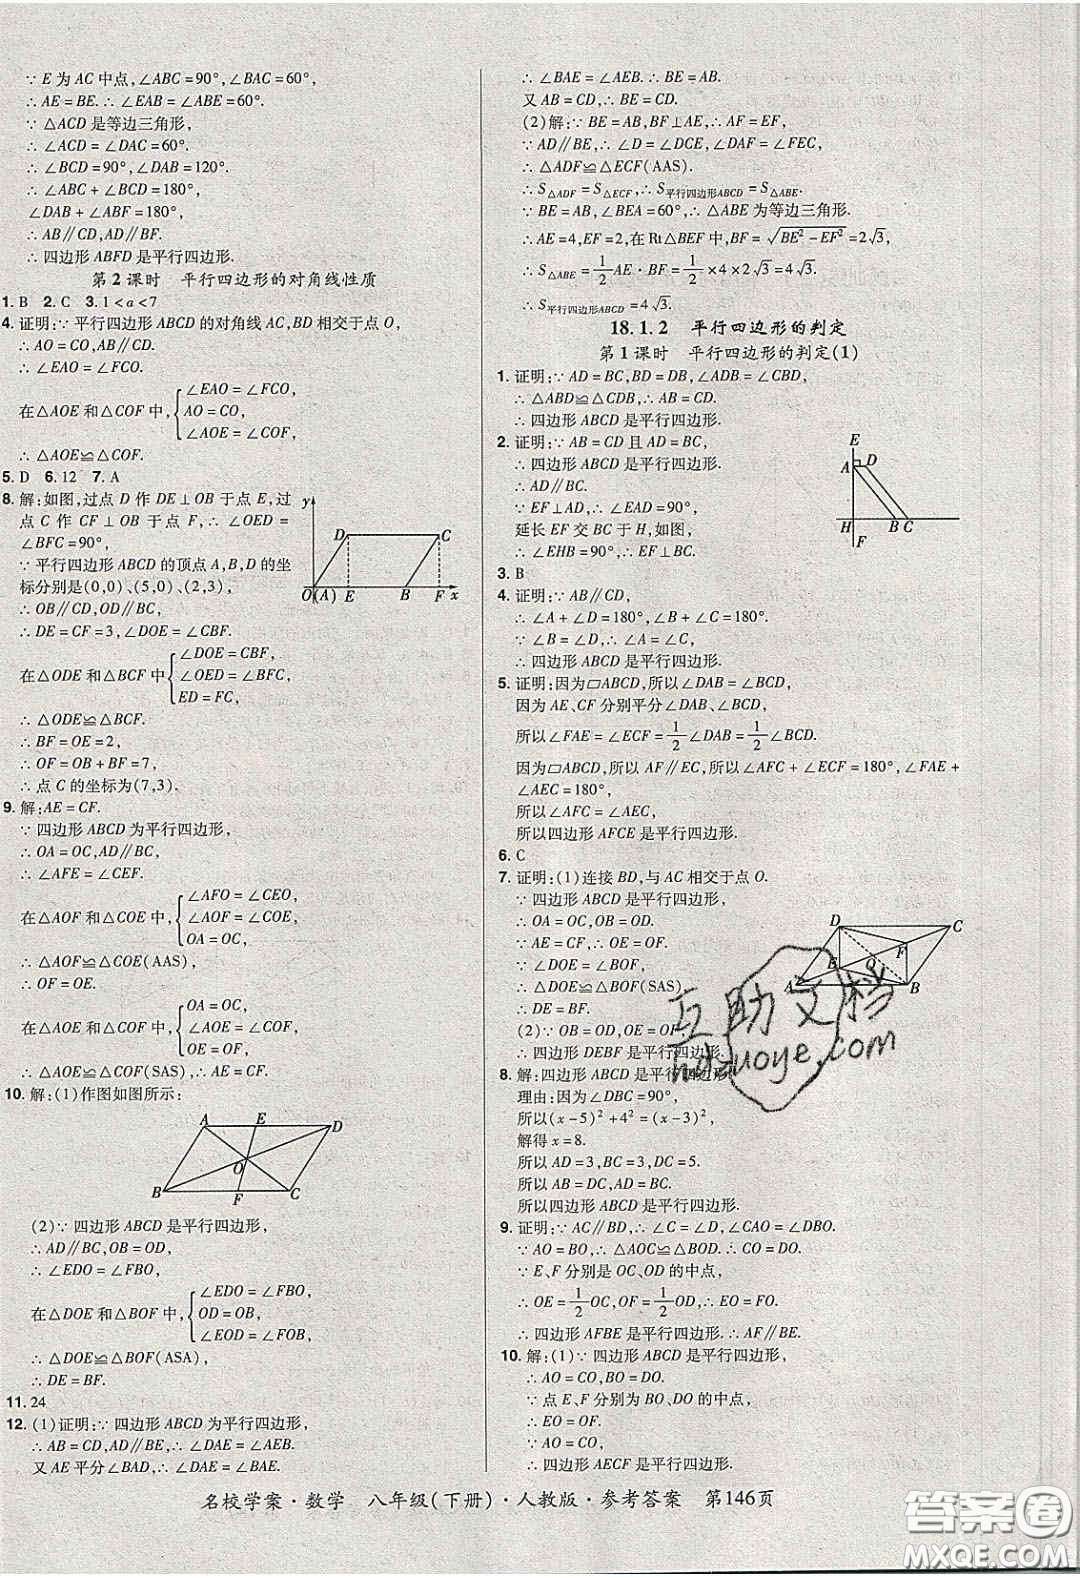 ∵ E 为 AC 中点,∠ABC=90°,∠BAC=60°,
∴ AE=BE.∴ ∠EAB=∠ABE=60°.
∵ △ACD 是等边三角形,
∴ ∠ACD=∠DAC=60°.
∴ ∠BCD=90°,∠DAB=120°.
∴ ∠ABC+∠BCD=180°,
∠DAB+∠ABF=180°,
∴ AB∥CD,AD∥BF.
∴ 四边形 ABFD 是平行四边形.
第 2 课时 平行四边形的对角线性质
1. B 2. C 3. 1<a<7
4. 证明:∵ 平行四边形 ABCD 的对角线 AC,BD 相交于点 O,
∴ AO=CO,AB∥CD.
∴ ∠EAO=∠FCO.
在△AOE 和△COF 中,{∠EAO=∠FCO,
AO=CO,
∠AOE=∠COF,
∴ △AOE≌△COF.
5. D 6. 12 7. A
8. 解:如图,过点 D 作 DE⊥OB 于点 E,过
点 C 作 CF⊥OB 于点 F,∴ ∠OED=
∠BFC=90°,
∵ 平行四边形 ABCD 的顶点 A,B,D 的坐
标分别是(0,0)、(5,0)、(2,3),
∴ OB∥CD,OD∥BC.
∴ DE=CF=3,∠DOE=∠CBF.
在△ODE 和△BCF 中{∠DOE=CBF,
∠OED=∠BFC,
ED=FC,
∴ △ODE≌△BCF.
∴ BF=OE=2,
∴ OF=OB+BF=7,
∴ 点 C 的坐标为(7,3).
y D C
O(A) E B F x
9. 解:AE=CF.
∵ 四边形 ABCD 为平行四边形,
∴ OA=OC,AD∥BC,
∴ ∠AFE=∠CEF.
在△AOF 和△COE 中,{∠AFO=∠CEO,
∠AOF=∠COE,
OA=OC,
∴ △AOF≌△COE(AAS),
∴ OF=OE.
在△AOE 和△COF 中{OA=OC,
∠AOE=∠COF,
OE=OF,
∴ △AOE≌△COF(SAS),∴ AE=CF.
10. 解:(1)作图如图所示:
A E D
O
B F C
(2)∵ 四边形 ABCD 是平行四边形,
∴ AD∥BC,OB=OD,
∴ ∠EDO=∠FBO,
在△DOE 和△BOF 中,{∠EDO=∠FBO,
OD=OB,
∠EOD=∠FOB,
∴ △DOE≌△BOF(ASA),
∴ DE=BF.
11. 24
12. (1)证明:∵ 四边形 ABCD 为平行四边形,
∴ AB=CD,AD∥BE,∴ ∠DAE=∠AEB.
又 AE 平分∠BAD,∴ ∠DAE=∠BAE.
∴ ∠BAE=∠AEB.∴ BE=AB.
又 AB=CD,∴ BE=CD.
(2)解:∵ BE=AB,BF⊥AE,∴ AF=EF,
∵ AD∥BE,∴ ∠D=∠DCE,∠DAF=∠FEC,
∴ △ADF≌△ECF(AAS).
∴ S△ADF=S△ECF,∴ S平行四边形ABCD=S△ABE.
∵ BE=AB,∠BEA=60°,∴ △ABE 为等边三角形.
∴ AE=4,EF=2,在 Rt△BEF 中,BF=√(BE²−EF²)=2√3,
∴ S△ABE=1/2 AE·BF=1/2×4×2√3=4√3.
∴ S平行四边形ABCD=4√3.
18.1.2 平行四边形的判定
第 1 课时 平行四边形的判定(1)
1. 证明:∵ AD=BC,BD=DB,∠ADB=∠CBD,
∴ △ABD≌△CDB,∴ AB=CD.
∴ 四边形 ABCD 是平行四边形.
2. 证明:∵ AB=CD 且 AD=BC,
∴ 四边形 ABCD 是平行四边形.
∴ AD∥BC.
∵ EF⊥AD,∴ EF⊥AD,
延长 EF 交 BC 于 H,如图,
∴ ∠EHB=90°,∴ EF⊥BC.
E
A D
H B C
F
3. B
4. 证明:∵ AB∥CD,
∴ ∠A+∠D=180°,∠B+∠C=180°.
∵ ∠B=∠D,∴ ∠A=∠C,
∴ 四边形 ABCD 是平行四边形.
5. 证明:因为▱ABCD,所以∠DAB=∠BCD,
因为 AE、CF 分别平分∠DAB、∠BCD,
所以∠FAE=∠ECF=1/2∠DAB=1/2∠BCD.
因为▱ABCD,所以 AF∥EC,所以∠AFC+∠ECF=180°,∠FAE+
∠AEC=180°,
所以∠AFC=∠AEC,
所以四边形 AFCE 是平行四边形.
6. C
7. 证明:(1)连接 BD,与 AC 相交于点 O.
∵ 四边形 ABCD 是平行四边形,
∴ OA=OC,OB=OD.
∵ AE=CF,∴ OE=OF,
∵ ∠DOE=∠BOF,
∴ △DOE≌△BOF(SAS),
∴ DE=BF.
(2)∵ OB=OD,OE=OF,
∴ 四边形 DEBF 是平行四边形.
D C
F
E O
A B
8. 解:四边形 ABCD 是平行四边形.
理由:因为∠DBC=90°,
所以(x−5)²+4²=(x−3)²,
解得 x=8.
所以 AD=3,BC=3,DC=5.
所以 AB=DC,AD=BC.
所以四边形 ABCD 是平行四边形.
9. 证明:∵ AC∥BD,∴ ∠C=∠D,∠CAO=∠DBO.
∵ AO=BO,∴ △AOC≌△BOD.∴ CO=DO.
∵ E、F 分别是 OC、OD 的中点,
∴ OE=1/2 OC,OF=1/2 OD,∴ EO=FO.
∴ 四边形 AFBE 是平行四边形.∴ AF∥BE.
10. 解:(1)∵ 四边形 ABCD 是平行四边形,
∴ AO=CO,BO=DO.
∵ 点 E、F 分别为 BO、DO 的中点,
∴ EO=OF.
∵ AO=CO,
∴ 四边形 AECF 是平行四边形.
名校学案·数学 八年级(下册)·人教版·参考答案 第146页
互助文档
hdzuoye.com
答案圈
MXQE.COM